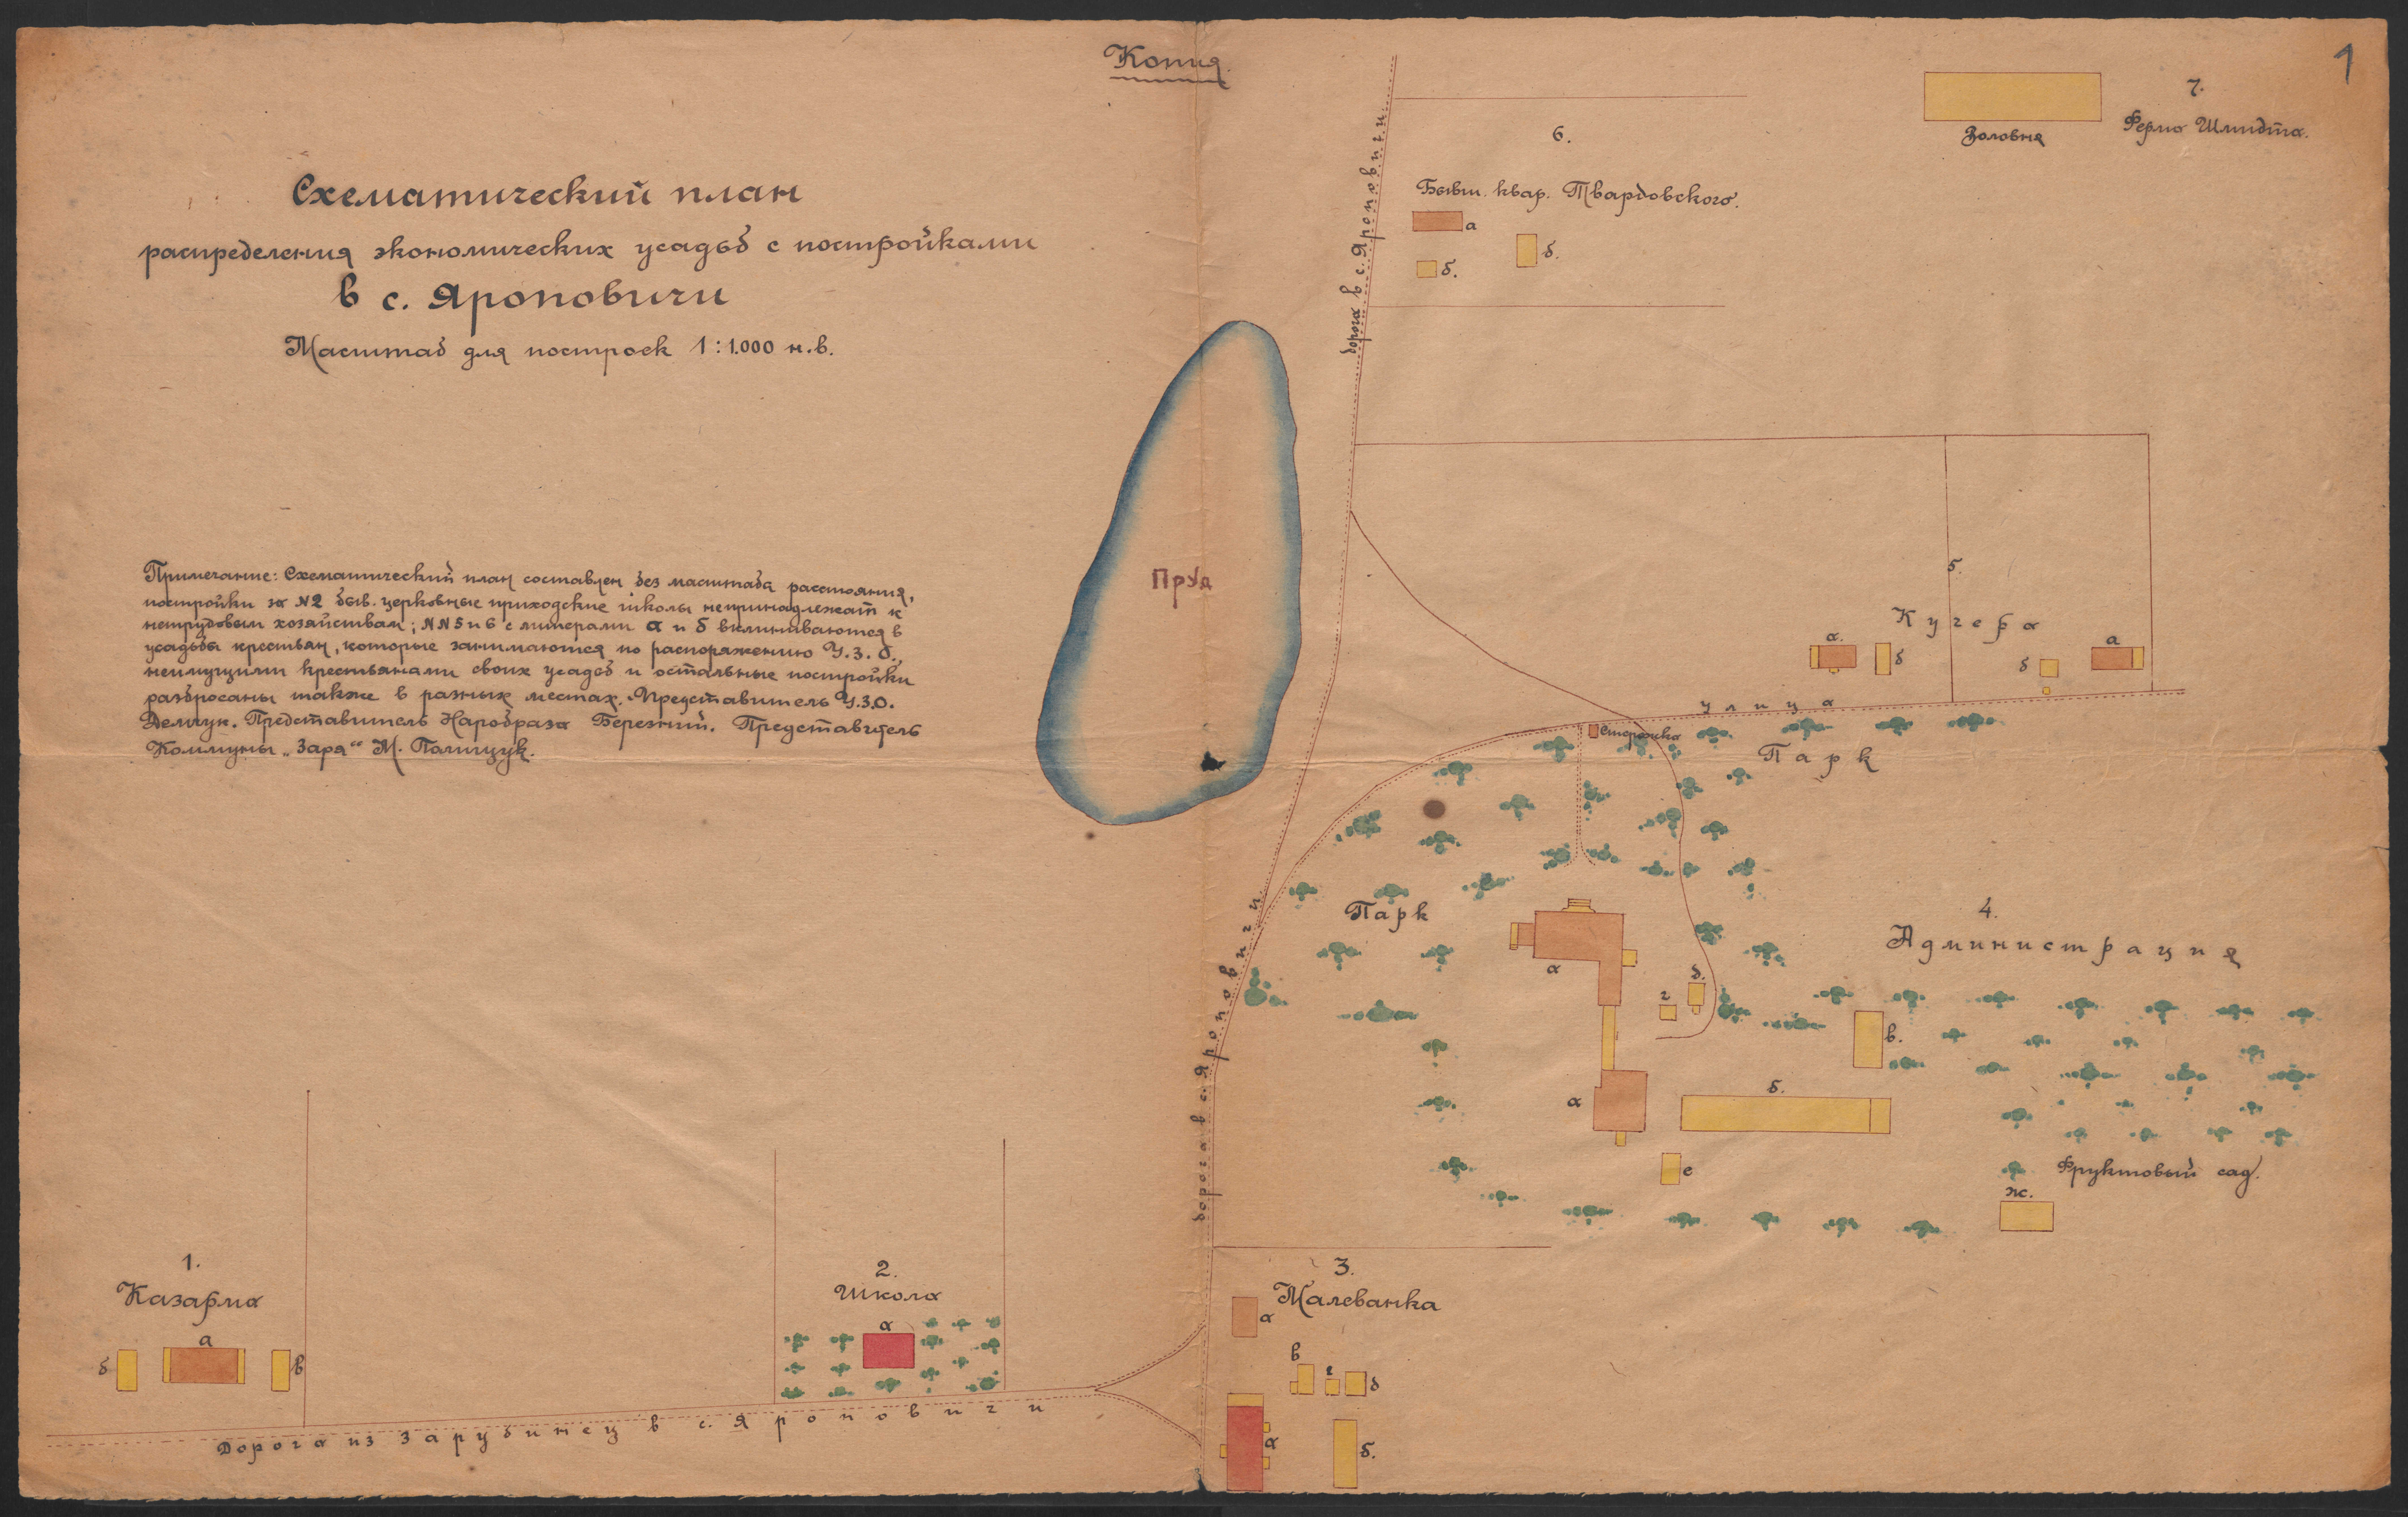 Копия.
1
Схематический план
распределения экономических усадьб с постройками
в с. Яроповичи
Масштаб для построек 1:1.000 н.в.
Примечание: Схематический план составлен без масштаба расстояния,
постройки за №2 быв. церковные приходские школы непринадлежат к
нетрудовым хозяйствам; №№5 и 6 с литерами а и б вклиниваются в
усадьбы крестьян, которые занимаются по распоряжению У.З.О.,
неимущими крестьянами своих усадьб и остальные постройки
разбросаны также в разных местах. Представитель У.З.О.
Демчук. Представитель Наробраза Бережний. Представитель
Коммуны „Заря“ М. Полищук.
7.
Ферма Шмидта.
Половня
6.
Бывш. квар. Твардовского.
а
б.
б.
дорога в с. Яроповичи
Пруд
5.
Кучера
а.
б
б
а
улица
Сторожка
Парк
Парк
4.
Администрация
а
д.
г
в.
а
б.
е
Фруктовый сад.
ж.
дорога в с. Яроповичи
1.
Казарма
а
б
в
2.
Школа
а
3.
Малеванка
а
в
г
д
а
б.
Дорога из Зарубинец в с. Яроповичи